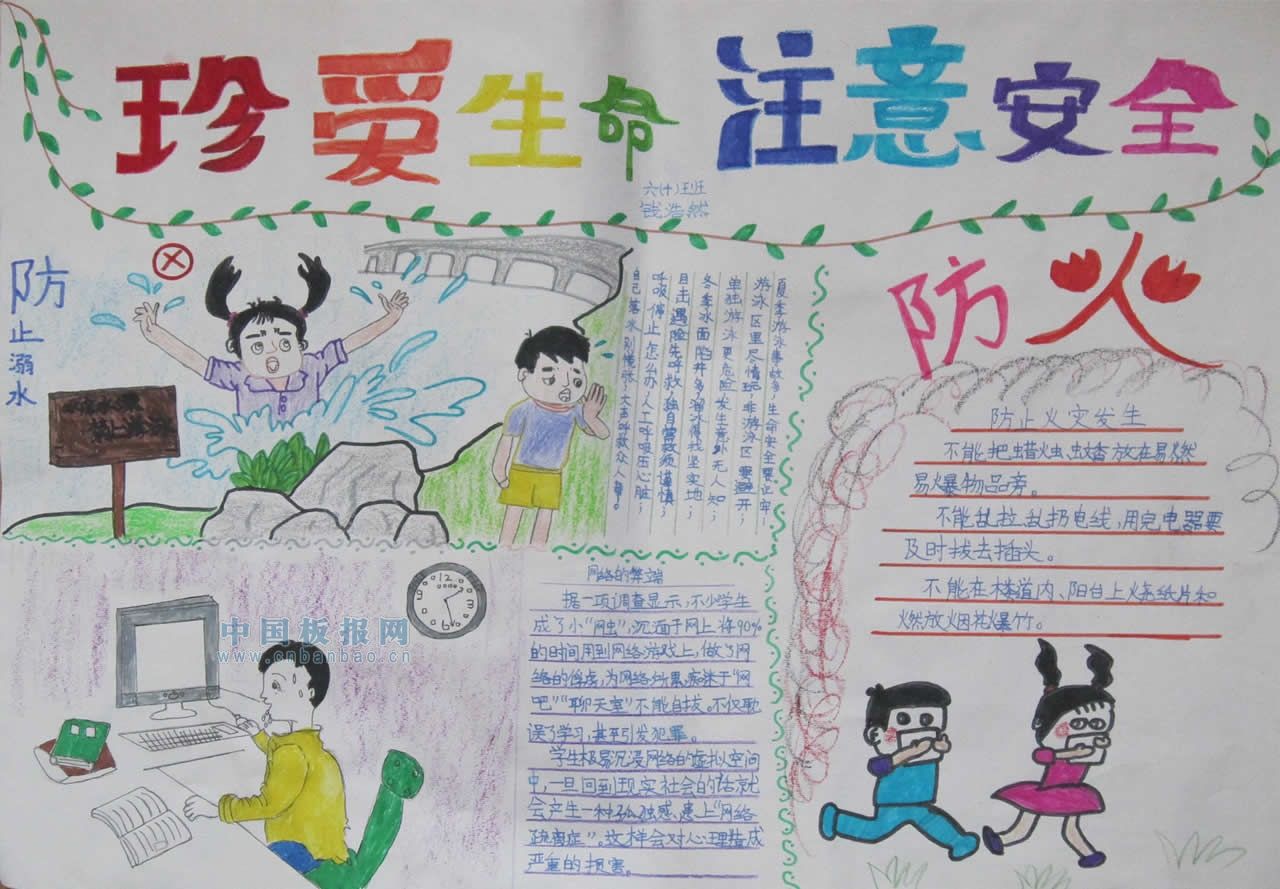 珍爱生命 注意安全
六(十)班
钱浩然
防止溺水
夏季游泳事故多,生命安全要正牢;
游泳区里尽情玩,非游泳区要避开;
单独游泳更危险,发生意外无人知;
冬季冰面陷井多,溜冰得找坚实地;
目击遇险先呼救,独自营救须谨慎;
呼吸停止怎么办,人工呼吸压心脏;
自己落水别慌张,大声呼救众人帮。
防火
防止火灾发生
不能把蜡烛、蚊香放在易燃
易爆物品旁。
不能乱拉、乱扔电线,用完电器要
及时拔去插头。
不能在楼道内、阳台上火烧纸片和
燃放烟花爆竹。
中国板报网
www.cnbanbao.cn
网络的弊端
据一项调查显示,不少学生
成了小“网虫”,沉湎于网上,将90%
的时间用到网络游戏上,做了网
络的俘虏,为网络所累,痴迷于“网
吧”“聊天室”不能自拔。不仅耽
误了学习,甚至引发犯罪。
学生极易沉浸网络的虚拟空间
中,一旦回到现实社会的话,就
会产生一种孤独感,患上“网络
疏离症”。这样会对心理造成
严重的损害。